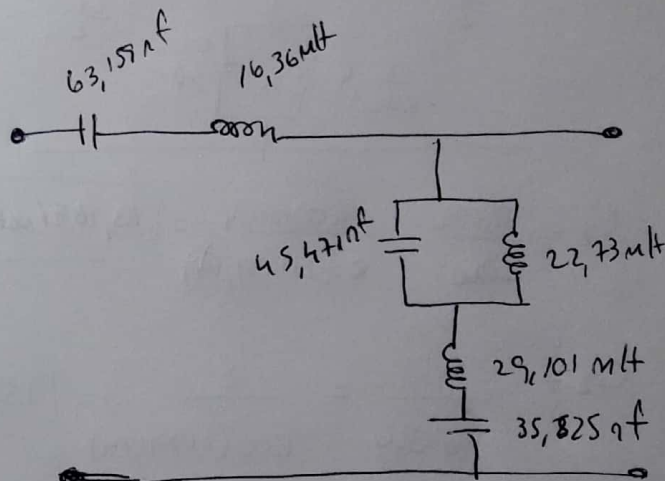 63,159 nf
16,36 mH
45,471 nf
22,73 mH
29,101 mH
35,825 nf